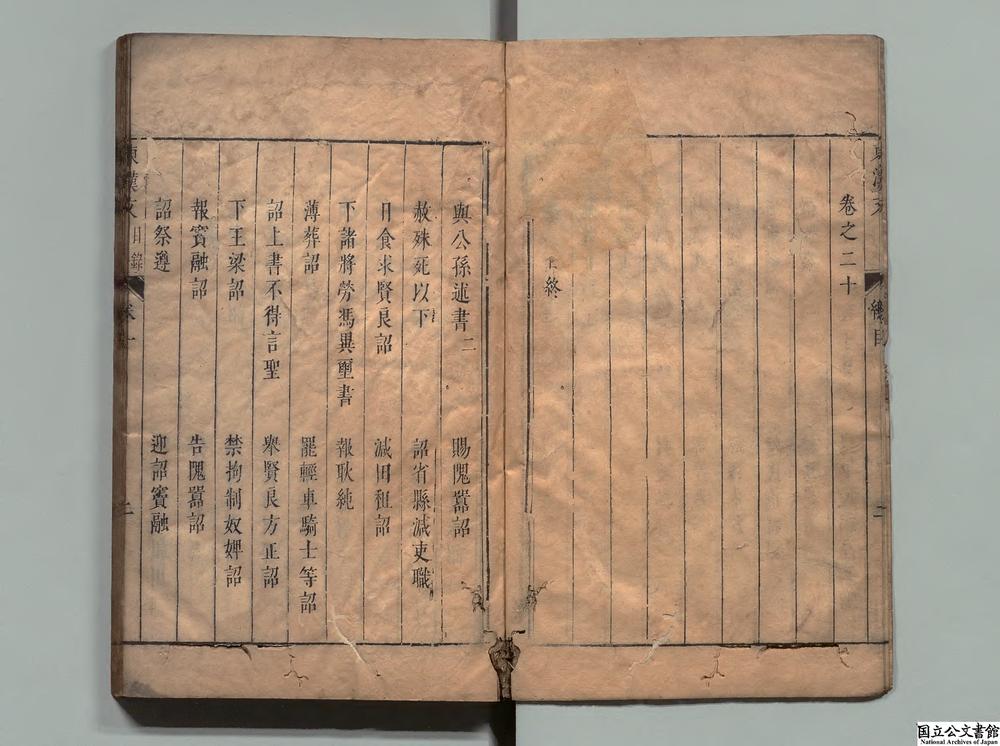 卷之二十
終
與公孫述書二
賜隗囂詔
赦殊死以下
詔省縣減吏職
日食求賢良詔
減田租詔
下諸將勞馮異璽書
報耿純
薄葬詔
罷輕車騎士等詔
詔上書不得言聖
舉賢良方正詔
下王梁詔
禁拘制奴婢詔
報竇融詔
告隗囂詔
詔祭遵
迎詔竇融
東漢文
目錄
卷一
二
国立公文書館
National Archives of Japan